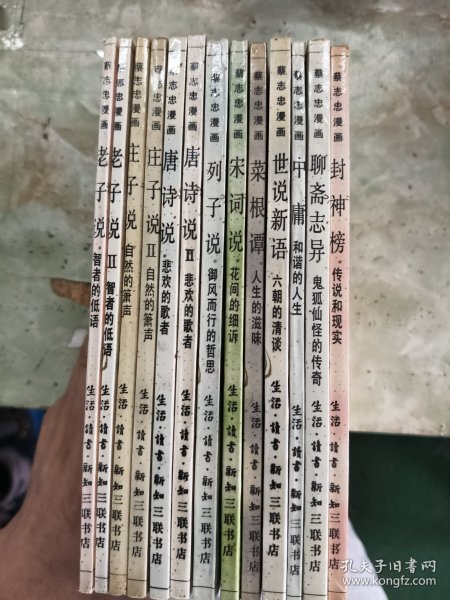 蔡志忠漫画 老子说 智者的低语 生活·讀書·新知三联书店
蔡志忠漫画 老子说 II 智者的低语 生活·讀書·新知三联书店
蔡志忠漫画 庄子说 自然的箫声 生活·讀書·新知三联书店
蔡志忠漫画 庄子说 II 自然的箫声 生活·讀書·新知三联书店
蔡志忠漫画 唐诗说 悲欢的歌者 生活·讀書·新知三联书店
蔡志忠漫画 唐诗说 II 悲欢的歌者 生活·讀書·新知三联书店
蔡志忠漫画 列子说 御风而行的哲思 生活·讀書·新知三联书店
蔡志忠漫画 宋词说 花间的细诉 生活·讀書·新知三联书店
蔡志忠漫画 菜根谭 人生的滋味 生活·讀書·新知三联书店
蔡志忠漫画 世说新语 六朝的清谈 生活·讀書·新知三联书店
蔡志忠漫画 中庸 和谐的人生 生活·讀書·新知三联书店
蔡志忠漫画 聊斋志异 鬼狐仙怪的传奇 生活·讀書·新知三联书店
蔡志忠漫画 封神榜 传说和现实 生活·讀書·新知三联书店
孔夫子旧书网
kongfz.com